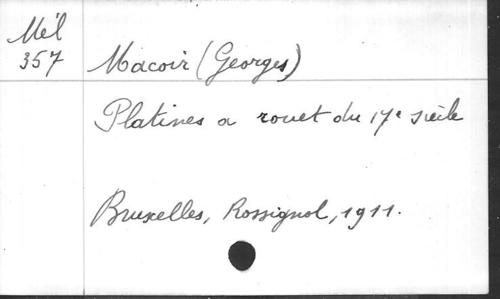 Mél
357
Macoir (Georges)
Platines a rouet du 17e siècle
Bruxelles, Rossignol, 1911.